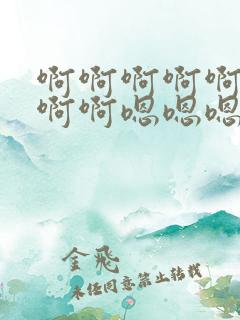 啊啊啊啊啊
啊啊嗯嗯嗯
金飛
未经同意禁止转载